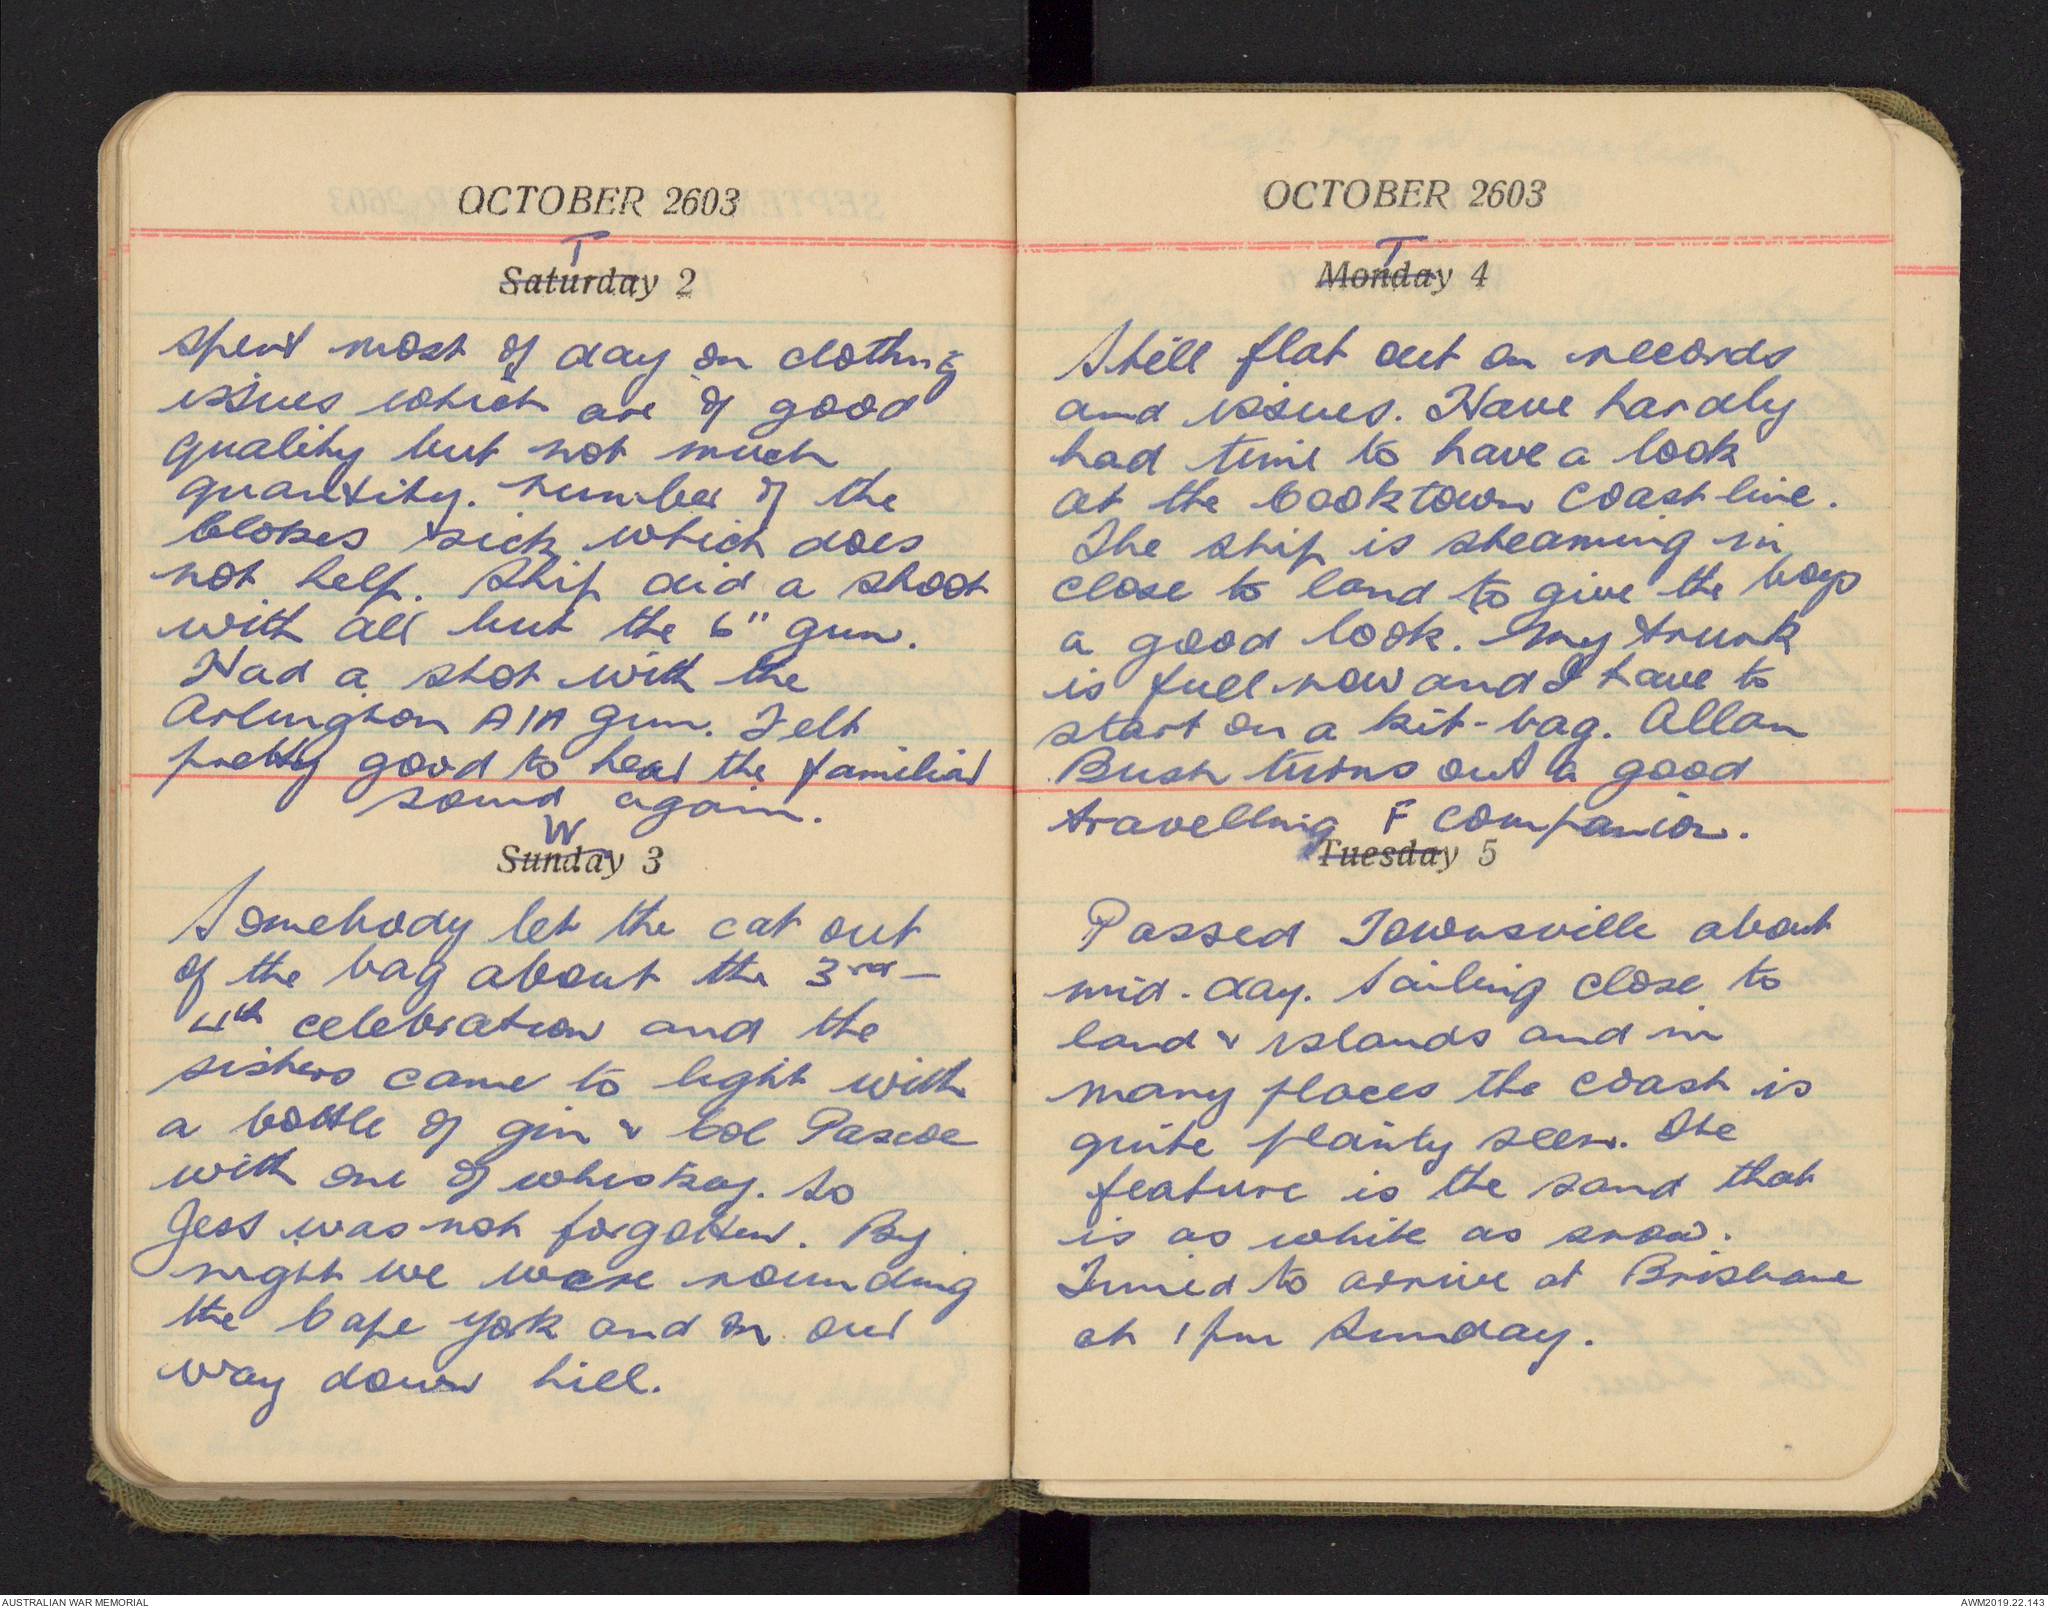 OCTOBER 2603
T
Saturday 2
Spent most of day on clothing
issues which are of good
quality but not much
quantity. Number of the
blokes sick which does
not help. Ship did a shoot
with all but the 6" gun.
Had a shot with the
Arlington A/A gun. Felt
pretty good to hear the familiar
sound again.
W
Sunday 3
Somebody let the cat out
of the bag about the 3rd -
4th celebration and the
sisters came to light with
a bottle of gin & Col Pascoe
with one of whiskey. So
Jess was not forgotten. By
night we were rounding
the Cape York and on our
way down hill.
OCTOBER 2603
T
Monday 4
Still flat out on records
and issues. Have hardly
had time to have a look
at the Cooktown coast line.
The ship is steaming in
close to land to give the boys
a good look. My trunk
is full now and I have to
start on a kit-bag. Allan
Bush turns out a good
travelling companion.
F
Tuesday 5
Passed Townsville about
mid-day. Sailing close to
land & islands and in
many places the coast is
quite plainly seen. One
feature is the sand that
is as white as snow.
Timed to arrive at Brisbane
at 1 pm Sunday.
AUSTRALIAN WAR MEMORIAL
AWM2019.22.143